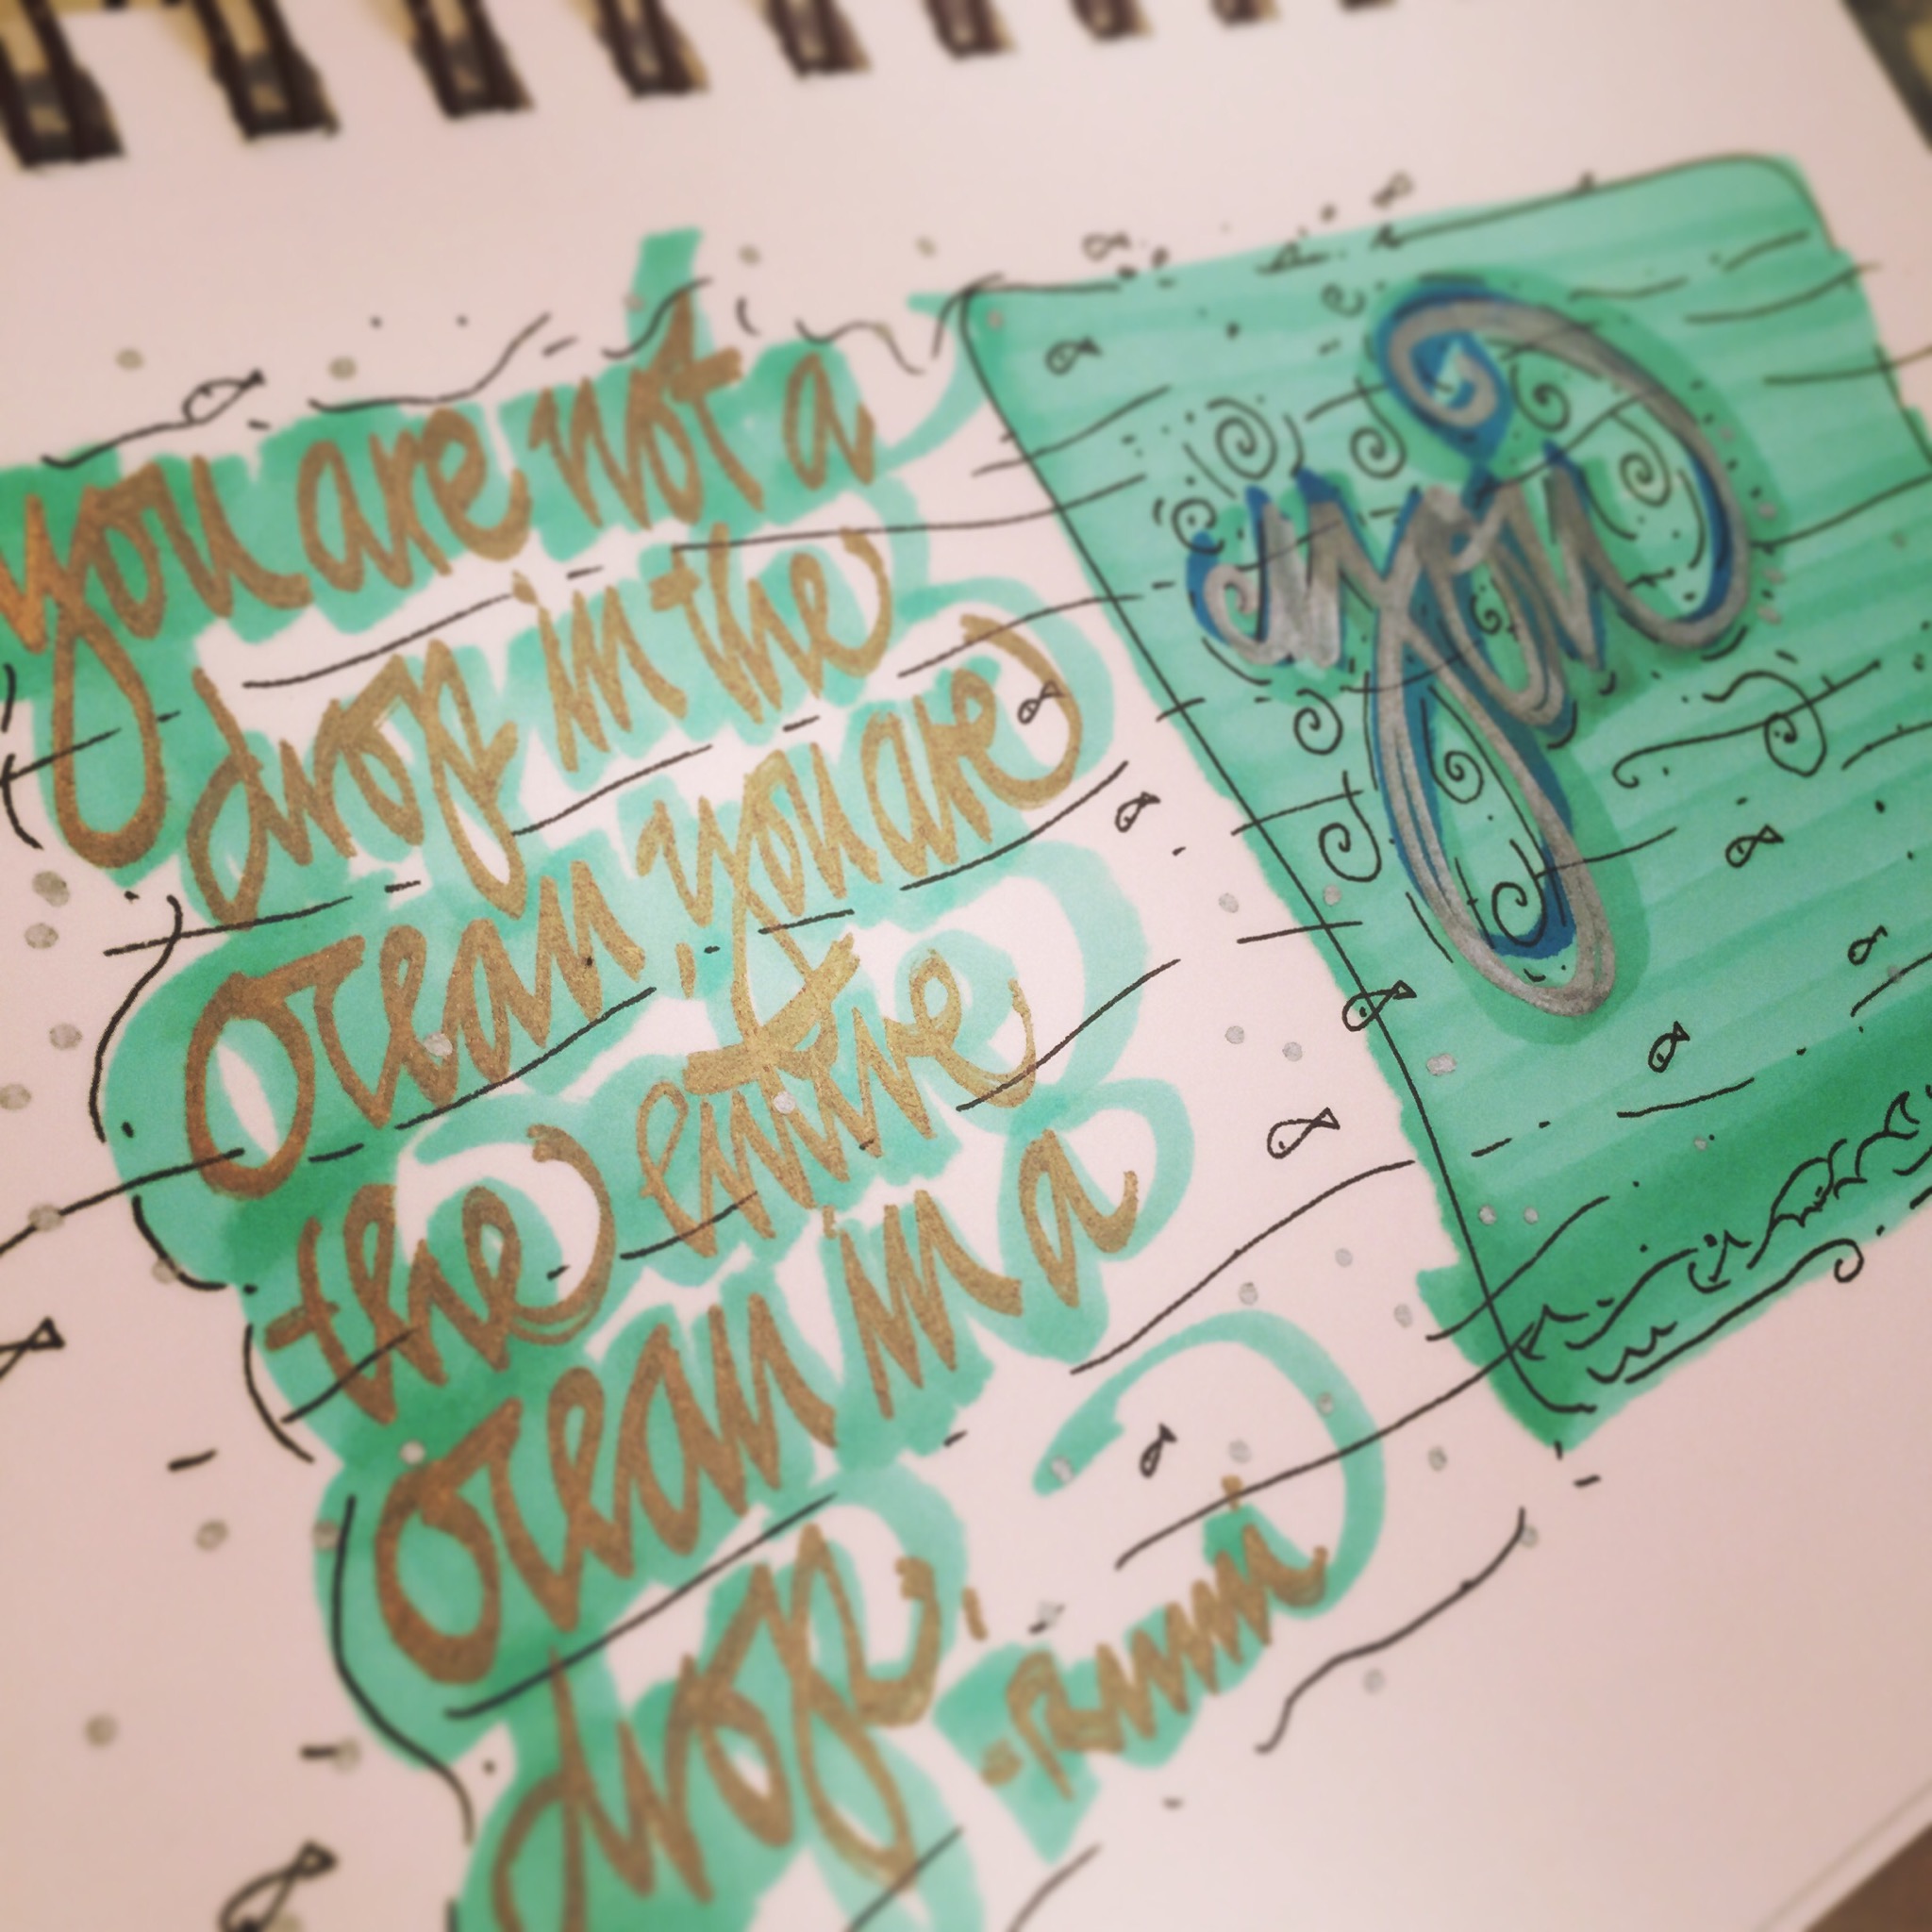 you are not a
drop in the
Ocean you are
the entire
Ocean in a
drop.
-Rumi
you